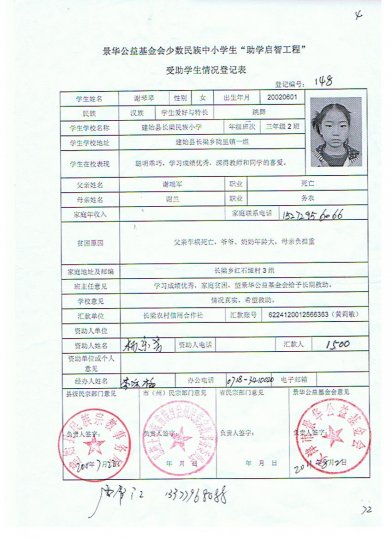 景华公益基金会少数民族中小学生“助学启智工程”
受助学生情况登记表
登记编号: 148
学生姓名 谢琴琴 性别 女 出生年月 20020601
民族 汉族 学生爱好与特长 跳舞
学生学校名称 建始县长梁民族小学 年级班次 三年级2班
学生学校地址 建始县长梁乡陇里镇一组
学生在校表现 聪明乖巧，学习成绩优秀，深得教师和同学的喜爱。
父亲姓名 谢瑞军 职业 死亡
母亲姓名 谢兰 职业 务农
家庭年收入 家庭联系电话
贫困原因 父亲车祸死亡，爷爷、奶奶年龄大，母亲负担重
家庭地址及邮编 长梁乡红石垭村3组
班主任意见 学习成绩优秀，家庭贫困，望景华公益基金会给予长期救助。
学校意见 情况真实，希望救助。
汇款单位 长梁农村信用合作社 汇款账号 6224120012566363（黄莉敏）
资助人单位
资助人姓名 资助人电话 汇款人 1500
资助单位或个人
意见
经办人姓名 办公电话 电子邮箱
县级民宗部门意见 市（州）民宗部门意见 省民宗部门意见 景华公益基金会意见
负责人签字: 负责人签字: 负责人签字: 负责人签字:
年 月 日 年 月 日